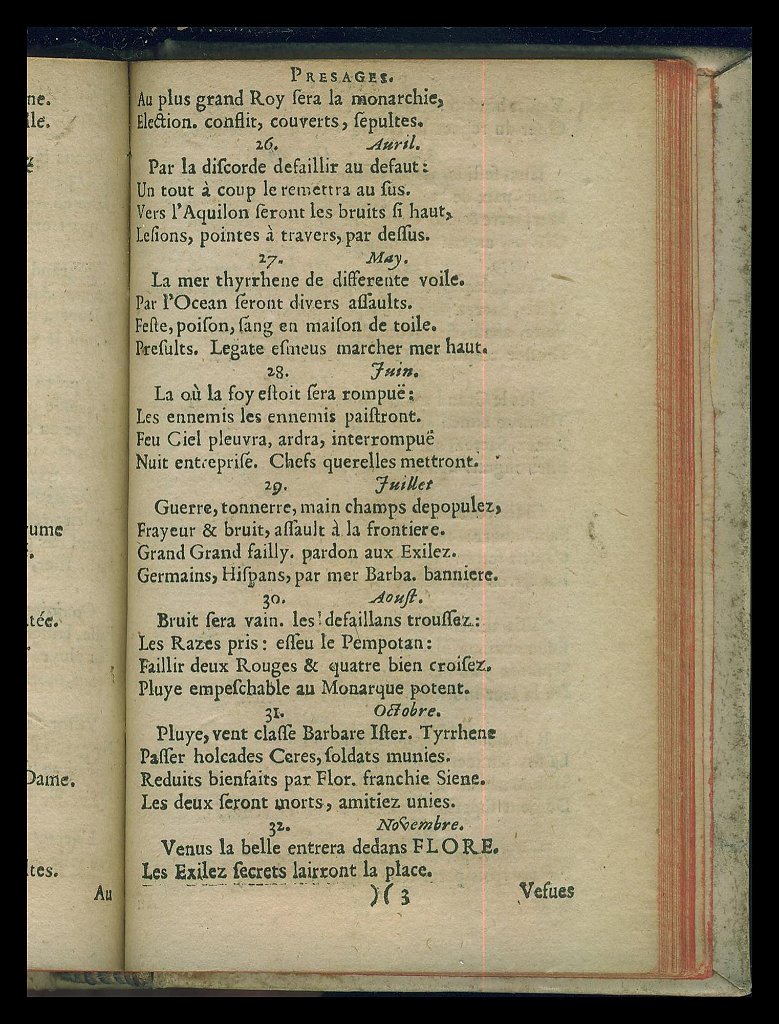 ne.
le.
rume
tée.
Dame.
tes.
Au
PRESAGES.
Au plus grand Roy ſera la monarchie,
Election. conflit, couverts, ſepultes.
26. Auril.
Par la diſcorde defaillir au defaut:
Un tout à coup le remettra au ſus.
Vers l'Aquilon ſeront les bruits ſi haut,
Leſions, pointes à travers, par deſſus.
27. May.
La mer thyrrhene de differente voile.
Par l'Ocean ſeront divers aſſaults.
Feſte, poiſon, ſang en maiſon de toile.
Preſults. Legate eſmeus marcher mer haut.
28. Juin.
La où la foy eſtoit ſera rompuë:
Les ennemis les ennemis paiſtront.
Feu Ciel pleuvra, ardra, interrompuë
Nuit entrepriſe. Chefs querelles mettront.
29. Juillet
Guerre, tonnerre, main champs depopulez,
Frayeur & bruit, aſſault à la frontiere.
Grand Grand failly. pardon aux Exilez.
Germains, Hiſpans, par mer Barba. banniere.
30. Aouſt.
Bruit ſera vain. les defaillans trouſſez:
Les Razes pris: eſſeu le Pempotan:
Faillir deux Rouges & quatre bien croiſez.
Pluye empeſchable au Monarque potent.
31. Octobre.
Pluye, vent claſſe Barbare Iſter. Tyrrhene
Paſſer holcades Ceres, ſoldats munies.
Reduits bienfaits par Flor. franchie Siene.
Les deux ſeront morts, amitiez unies.
32. Novembre.
Venus la belle entrera dedans FLORE.
Les Exilez ſecrets lairront la place.
)( 3 Veſues